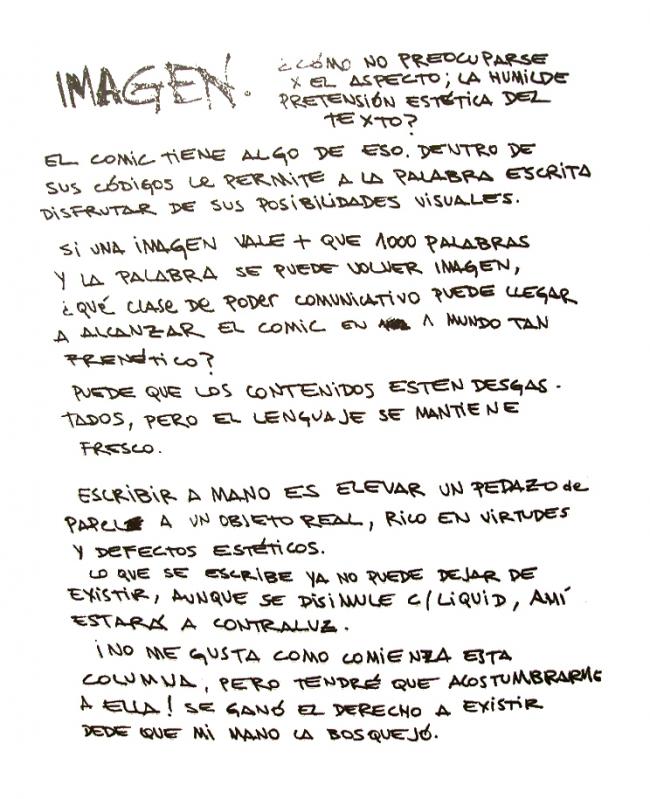 IMAGEN.
¿CÓMO NO PREOCUPARSE
X EL ASPECTO; LA HUMILDE
PRETENSIÓN ESTÉTICA DEL
TEXTO?
EL COMIC TIENE ALGO DE ESO. DENTRO DE
SUS CÓDIGOS LE PERMITE A LA PALABRA ESCRITA
DISFRUTAR DE SUS POSIBILIDADES VISUALES.
SI UNA IMAGEN VALE + QUE 1000 PALABRAS
Y LA PALABRA SE PUEDE VOLVER IMAGEN,
¿QUÉ CLASE DE PODER COMUNICATIVO PUEDE LLEGAR
A ALCANZAR EL COMIC EN 1 MUNDO TAN
FRENÉTICO?
PUEDE QUE LOS CONTENIDOS ESTEN DESGAS-
TADOS, PERO EL LENGUAJE SE MANTIENE
FRESCO.
ESCRIBIR A MANO ES ELEVAR UN PEDAZO de
PAPEL A UN OBJETO REAL, RICO EN VIRTUDES
Y DEFECTOS ESTÉTICOS.
LO QUE SE ESCRIBE YA NO PUEDE DEJAR DE
EXISTIR, AUNQUE SE DISIMULE C/LIQUID, AHÍ
ESTARÁ A CONTRALUZ.
¡NO ME GUSTA COMO COMIENZA ESTA
COLUMNA, PERO TENDRÉ QUE ACOSTUMBRARME
A ELLA! SE GANÓ EL DERECHO A EXISTIR
DEDE QUE MI MANO LA BOSQUEJÓ.